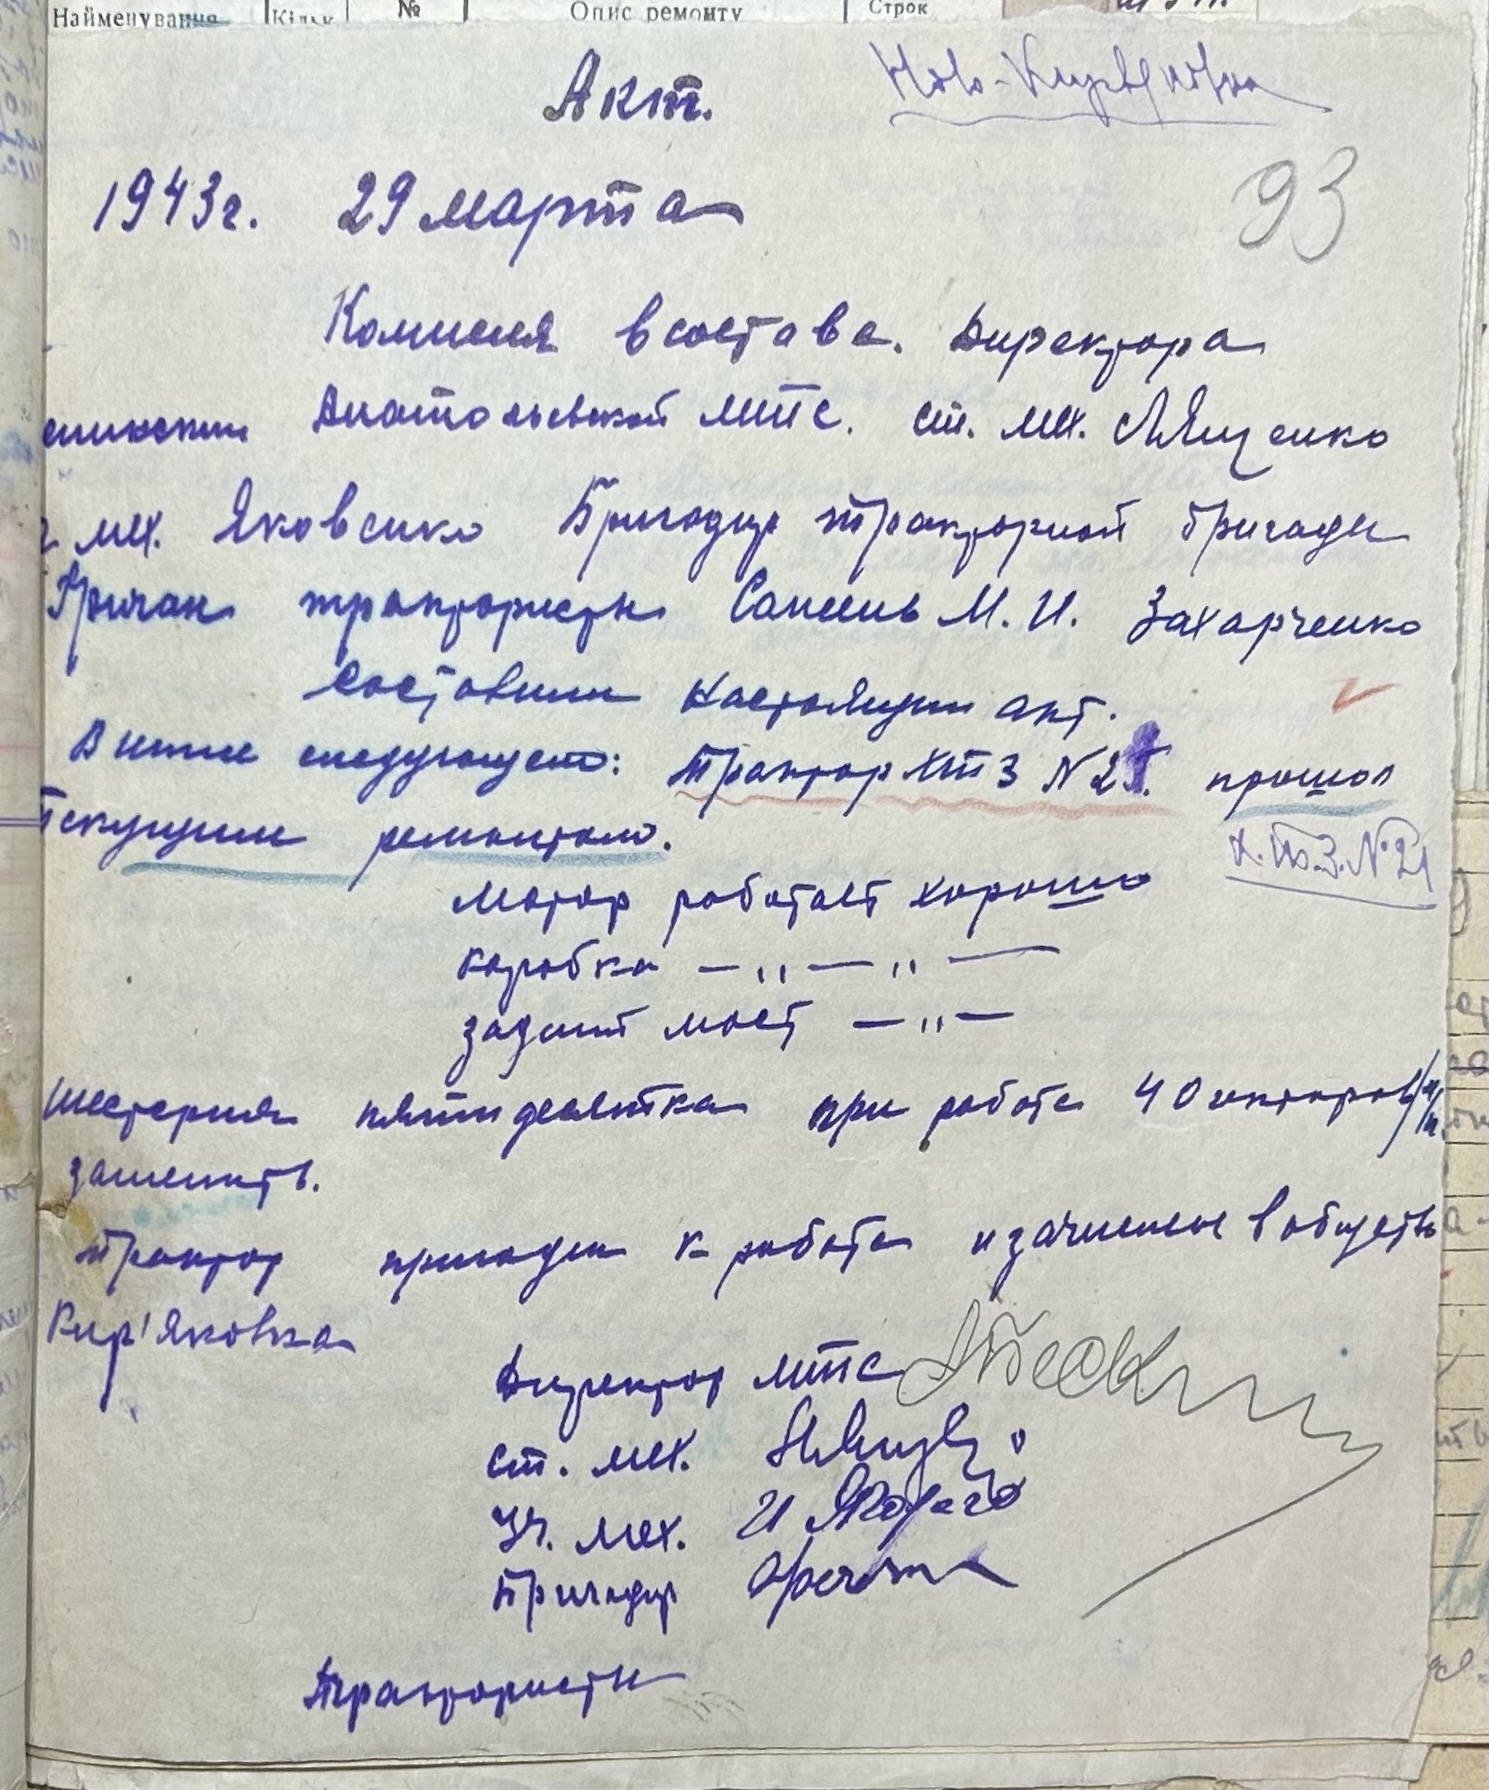 Найменування Кільк № Опис ремонту Строк
Акт.
Ново-Кирьяковка
93
1943г. 29 марта
Комисия в составе. Директора
Анатольевской МТС. ст. мех. Ляшенко
мех. Яковенко Бригадир тракторной бригады
трактористы М. И. Захарченко
составили настоящии акт.
В ниже следующем: Трактор ХТЗ N 21. прошол
текущии ремонтом.
Х.Т.З. № 21
мотор работает хорошо
коробка — „ — „ —
задний мост — „ —
шестерня пятидесятка при работе 40 гектаров
заменить.
трактор пригоден к работе и зачислен в общество
Кир'яковка
Директор МТС
ст. мех.
Уч. мех.
Бригадир
Трактористы